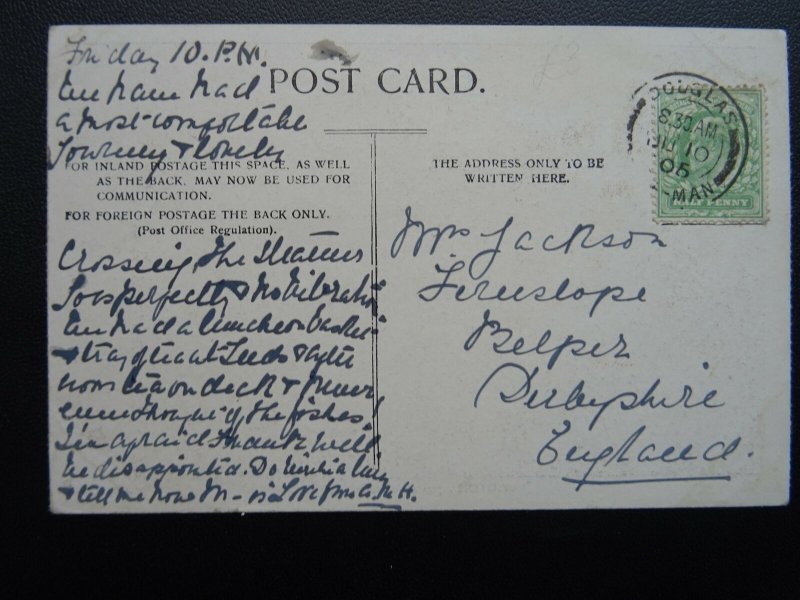 Friday 10. P.M.
We have had
a most comfortable
Journey & lovely
POST CARD.
£3
FOR INLAND POSTAGE THIS SPACE, AS WELL
AS THE BACK, MAY NOW BE USED FOR
COMMUNICATION.
FOR FOREIGN POSTAGE THE BACK ONLY.
(Post Office Regulation).
Crossing, the Steamer
goes perfectly & no vibration
We had a luncheon basket
& tray of tea at Leeds &
tea on deck & never
even thought of the fishes!
I'm afraid F will
be disappointed. Do write a line
& tell me how M- is Love from
THE ADDRESS ONLY TO BE
WRITTEN HERE.
DOUGLAS
8.30 AM
10
MAN
HALF PENNY
Mrs Jackson
Fernslope
Belper
Derbyshire
England.